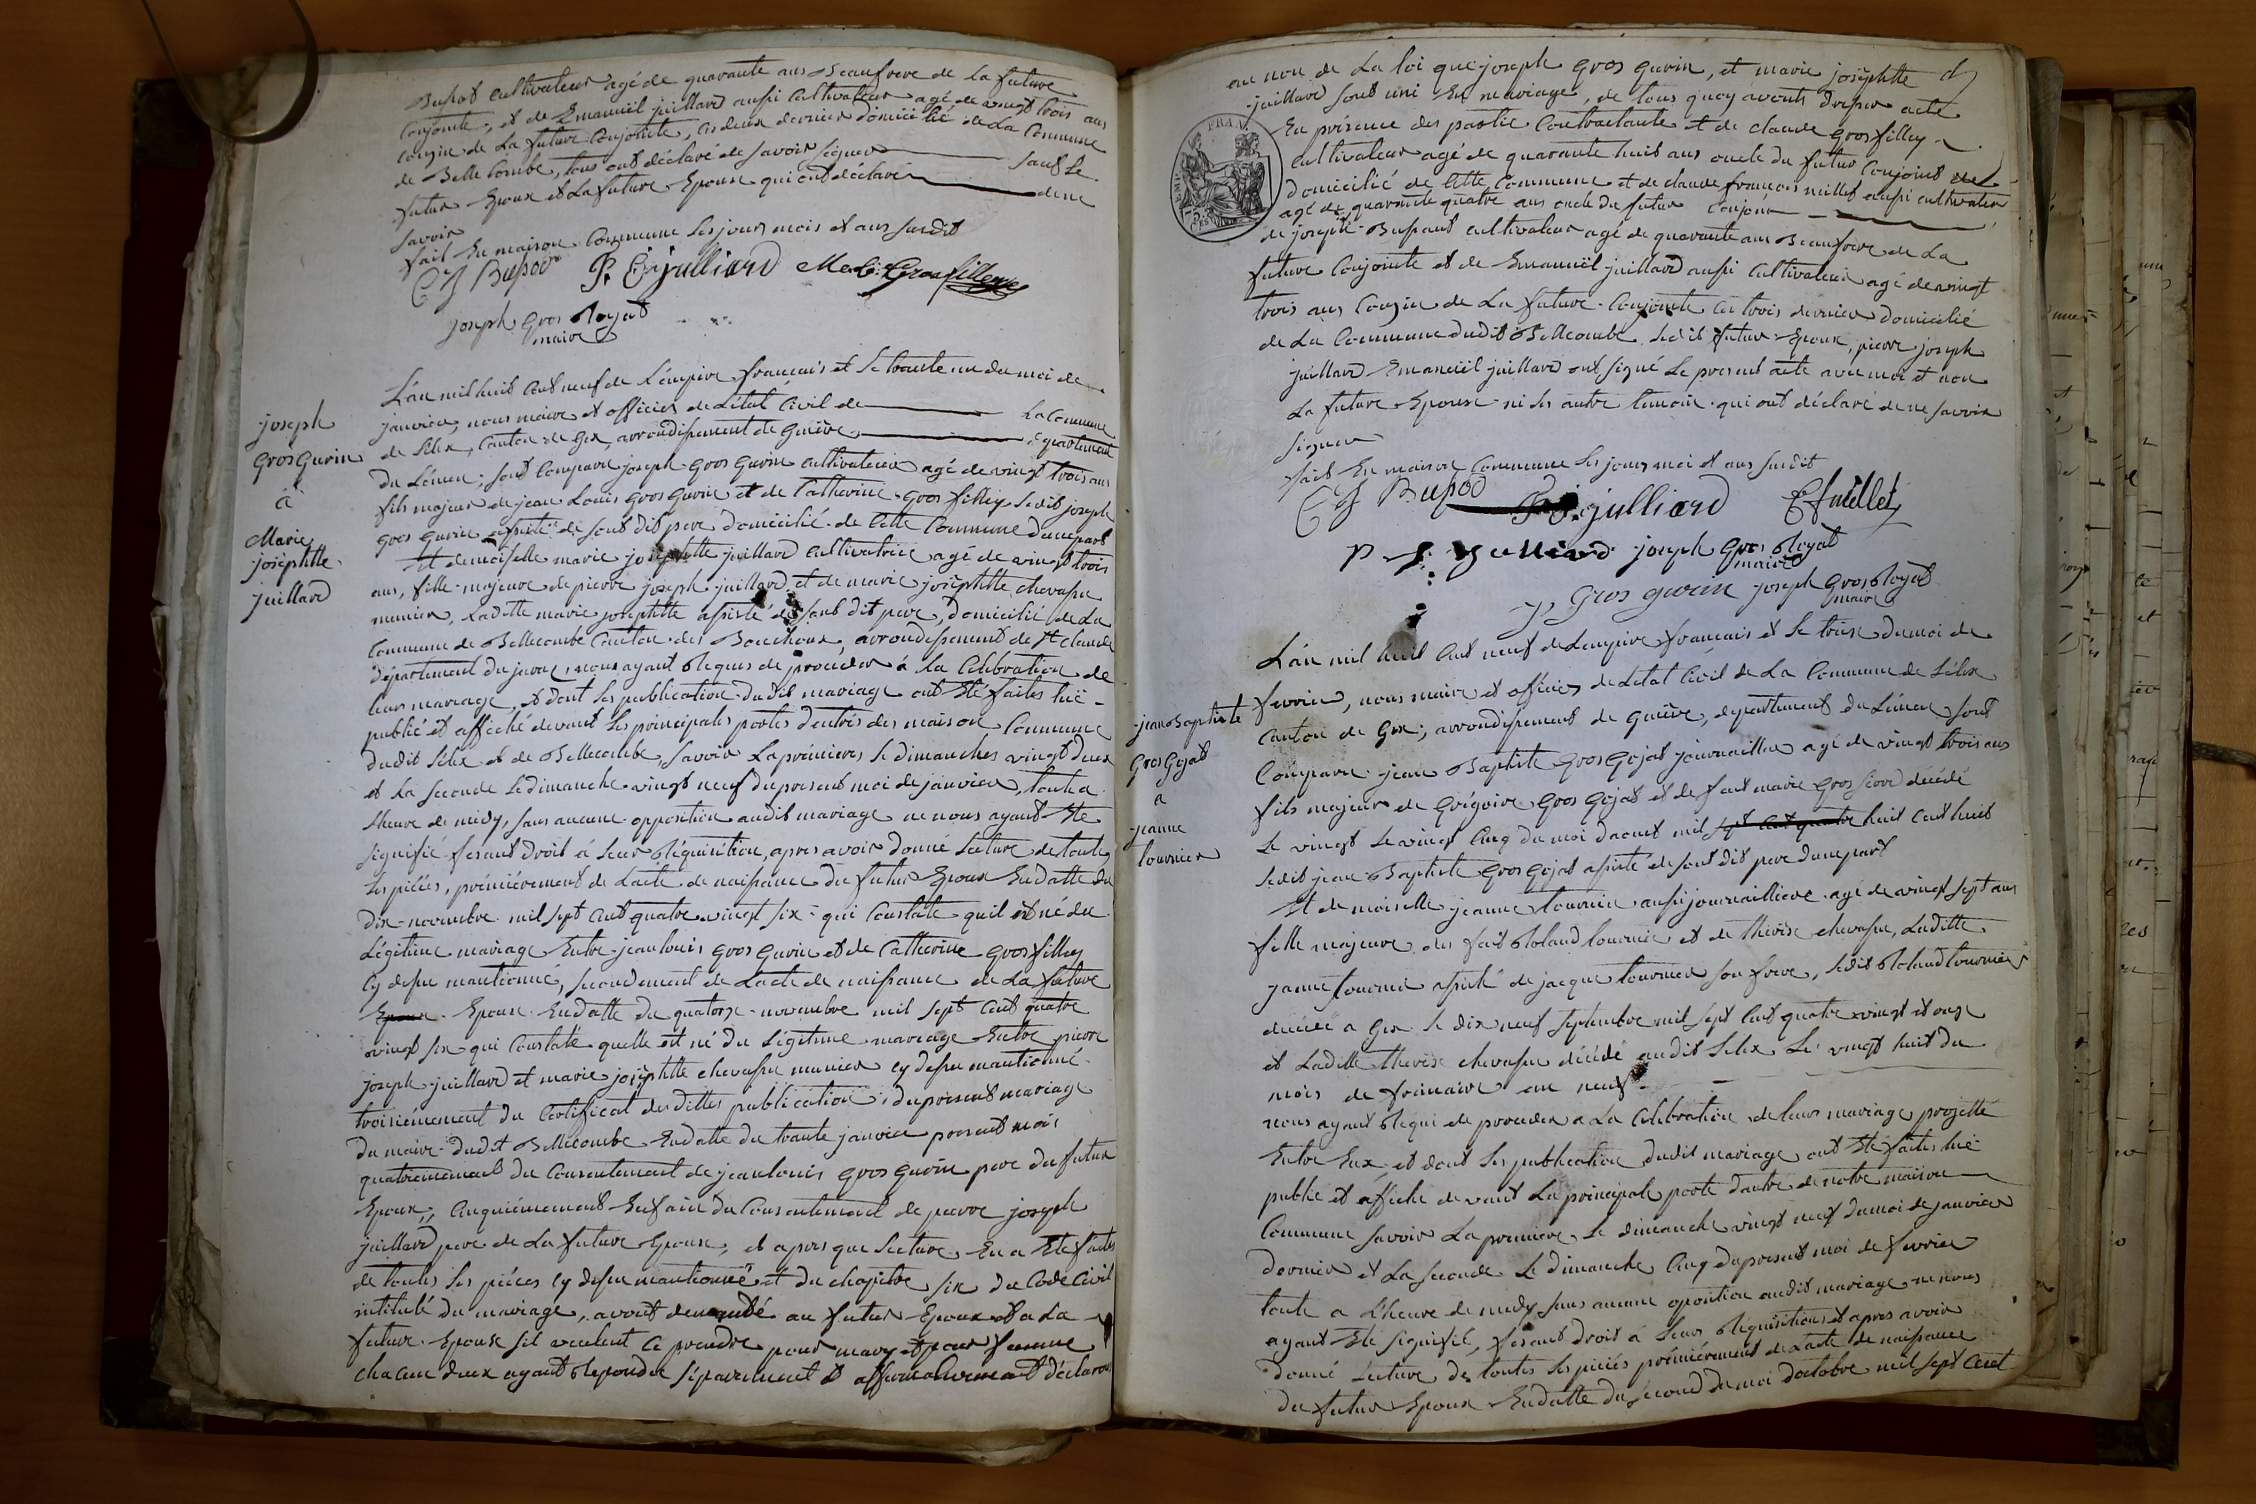 Bussod cultivateur agé de quarante ans Beaufrere de la future
Conjointe, et de Emanuiel juillard aussi Cultivateur agé de vingt trois ans
cousin de La future Conjointe, Ces deux dernier domicilié de La Commune
de Belle Combe, tous ont déclaré de savoir signer sauf Le
futur Epoux et La future Epouse qui ont déclaré de ne
savoir
fait En maison Commune Les jours mois et ans susdit
C J Bussod P. E juilliard Gros fillex
joseph gros Royat
maire
joseph
Gros Gurin
à
Marie
josephtte
juillard
L'án mil huit Cent neuf de L'empire français et Le trante un du moi de
janvier, nous maire et officier de L'état Civil de La Commune
de Lélex, Canton de Gex, arrondissement de Genève, département
du Léman, sont Comparu joseph Gros Gurin Cultivateur agé de vingt trois ans
fils majeur de jean Louis Gros Gurin et de Catherine Gros fillex Ledit joseph
gros Gurin assisté de sont dit pere domicilié de Cette Commune dune part
Et demoiselle marie josephtte juillard Cultivatrice agé de vingt trois
ans, fille majeure de pierre joseph juillard et de marie josèphtte chevassu
munier, Laditte marie josephtte assisté de sont dit pere, domicilié de La
Commune de Bellecombe Canton des Bouchoux, arrondissement de St Claude
département du jura, nous ayant Requis de procéder à La Célébration de
leur mariage, et dont Les publication dudit mariage ont Eté faites Luë
publié et affiché devant Les principales portes dentrés des maison Commune
dudit Lélex et de Bellecombe, savoir La première Le dimanches vingt deux
et La seconde Le dimanche vingt neuf du present moi de janvier, toute a
Lheure de midy, sans aucune opposition audit mariage ne nous ayant Eté
signifié fesant Droit à Leur Réquisition, apres avoir donné Lecture de toutes
Les piéces, prémiérement de Lacte de naissance du futur Epoux En datte du
Dix novembre mil sept Cent quatre vingt six qui Constate quil est né du
Légitime mariage Entre jean louis gros Gurin et de Catherine gros fillex
Cy dessu mantionné, secondement de Lacte de naissance de La future
Epoux Epouse En datte du quatorze novembre mil sept Cent quatre
vingt six qui Constate quelle est né du Légitime mariage Entre pierre
joseph juillard et marie josèphtte chevassu munier cy dessu mantionné
troisiémement du Certificat des dittes publication du present mariage
Du maire dudit Bellecombe En datte du trante janvier present mois
quatriémement du Consentement de jean louis gros Gurin pere du futur
Epoux, Cinquiémement Enfain du Consentement de pierre joseph
juillard pere de La future Epouse, et apres que Lecture En a Eté faites
de toutes Les piéces cy dessu mantionné et du chapitre six du Code Civil
intitulé du mariage, avons demandé au futur Epoux et a La
future Epouse sil veulent Ce prendre pour mary et pour femme
chacun deux ayant Repondu séparement et affirmativement déclarons
au nom de La loi que joseph Gros Gurin, et marie josèphtte
juillard sont uni En mariage, de tous quoy avonts dressé acte
En présence des partie Contractante et de claude Gros fillex
cultivateur agé de quarante huit ans oncle du futur Conjoint
domicilié de Cette Commune et de claude françois millet aussi cultivateur
agé de quarante quatre ans oncle du futur Conjoin
de joseph Bussaut cultivateur agé de quarante ans Beaufrere de La
future Conjointe et de Emanuiël juillard aussi Cultivateur agé de vingt
trois ans Cousin de La future Conjointe Ces trois dernier domicilié
de La Commune dudit Bellecombe Ledit futur Epoux, pierre joseph
juillard Emanuiël juillard ont signé Le present acte avec moi et non
La future Epouse ni Les autre temoin qui ont déclaré de ne savoir
signer
fait En maison Commune Les jours moi et ans susdit
C J Bussod P. E. juilliard C f millet
P J. juilliard joseph Gros Royat
maire
J Gros gurin joseph Gros Royat
maire
jean Baptiste
Gros Gojat
a
jeanne
tournier
L'án mil huit Cent neuf de Lempire français et Le treize du moi de
fevrier, nous maire et officier de Létat Civil de La Commune de Lélex
Canton de Gex, arrondissement de Genève, département du Léman sont
Comparu jean Baptiste Gros Gojat journaillier agé de vingt trois ans
fils majeur de Grégoire Gros Gojat et de feut marie Gros decédé
Le vingt Le vingt Cinq du moi daout mil sept Cent quatre huit Cent huit
Ledit jean Baptiste Gros Gojat assisté de sont dit pere dune part
Et de moiselle jeanne tournier aussi journailliere agé de vingt sept ans
fille majeure des feut Roland tournier et de thérèse chevassu, Laditte
jeanne tournier assisté de jacque tournier son frere, Ledit Roland tournier
decédé a Gex Le dix neuf septembre mil sept Cent quatre vingt et onze
et Laditte therése chevassu décédé audit Lélex Le vingt huit du
mois de frimaire an neuf
nous ayant Requi de proceder a La Célébration de leur mariage projetté
Entre Eux et dont Les publication dudit mariage ont Eté faites luë
publié et affiché devant La principale porte dantré de notre maison
Commune savoir La premiere Le dimanche vingt neuf du moi de janvier
dernier et La seconde Le dimanche Cinq du present moi de fevrier
toute a L'heure de midy sans aucune oposition audit mariage ne nous
ayant Eté signifié, fesant droit à Leur Requisition et apres avoir
donné Lecture de toutes Les piéces prémiérement de Lacte de naissance
du futur Epoux En datte du second du moi doctobre mil sept Cent